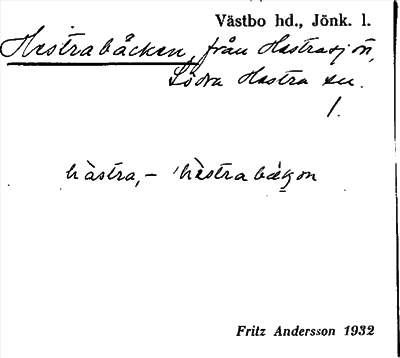 Västbo hd., Jönk. l.
Hestrabäcken, från Hestrasjön,
Södra Hestra sn.
1.
hàstra, – 'hèstrabäkon
Fritz Andersson 1932